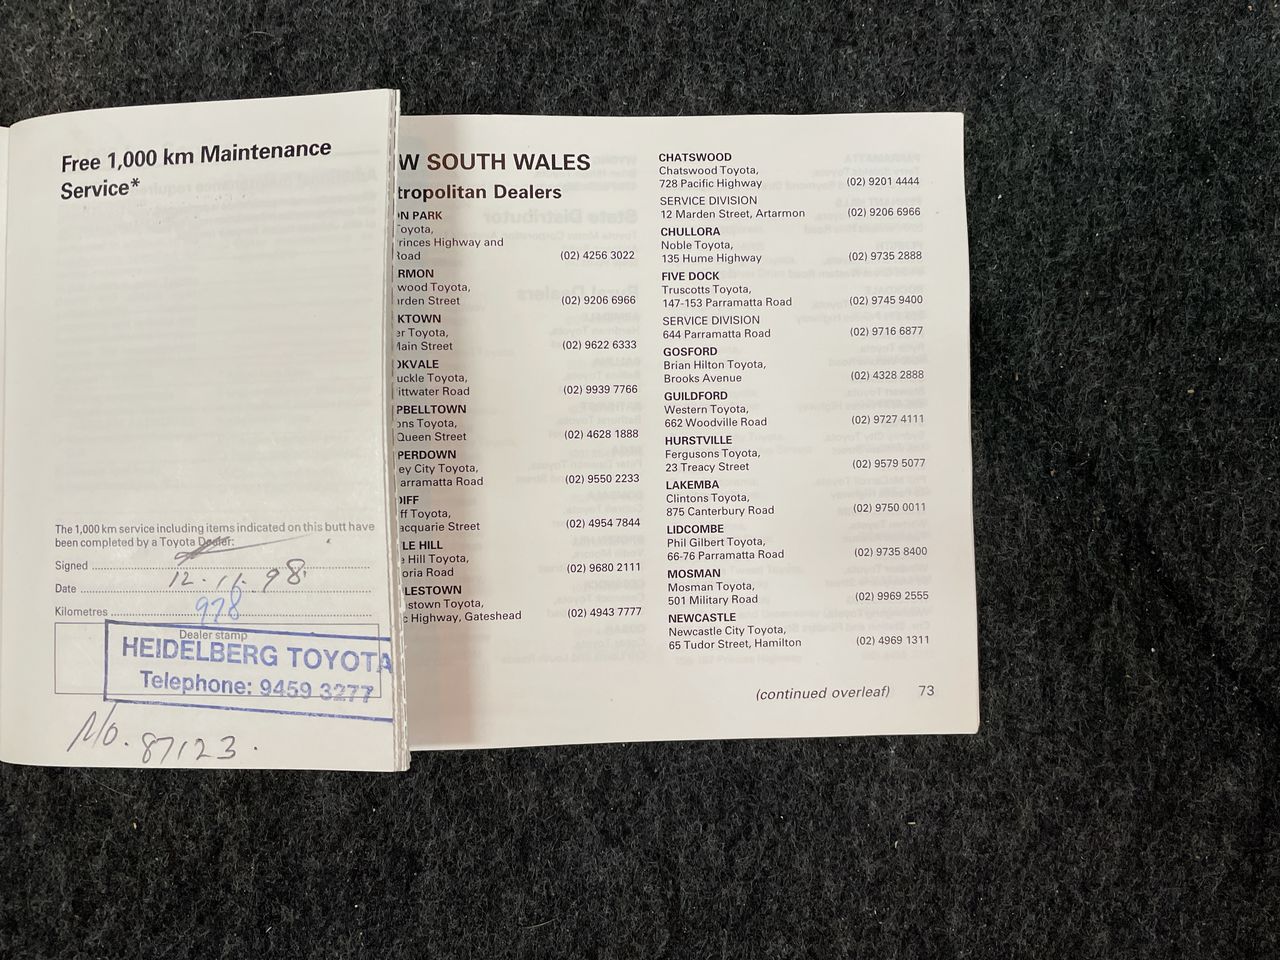 Free 1,000 km Maintenance
Service*
The 1,000 km service including items indicated on this butt have
been completed by a Toyota Dealer:
Signed
Date 12.11.98.
Kilometres 978
Dealer stamp
HEIDELBERG TOYOTA
Telephone: 9459 3277
No. 87123.
W SOUTH WALES
tropolitan Dealers
ON PARK
Toyota,
rinces Highway and
Road (02) 4256 3022
RMON
wood Toyota,
arden Street (02) 9206 6966
KTOWN
er Toyota,
Main Street (02) 9622 6333
OKVALE
uckle Toyota,
ittwater Road (02) 9939 7766
PBELLTOWN
ons Toyota,
Queen Street (02) 4628 1888
PERDOWN
ey City Toyota,
arramatta Road (02) 9550 2233
DIFF
ff Toyota,
acquarie Street (02) 4954 7844
LE HILL
e Hill Toyota,
oria Road (02) 9680 2111
LESTOWN
stown Toyota,
c Highway, Gateshead (02) 4943 7777
CHATSWOOD
Chatswood Toyota,
728 Pacific Highway (02) 9201 4444
SERVICE DIVISION
12 Marden Street, Artarmon (02) 9206 6966
CHULLORA
Noble Toyota,
135 Hume Highway (02) 9735 2888
FIVE DOCK
Truscotts Toyota,
147-153 Parramatta Road (02) 9745 9400
SERVICE DIVISION
644 Parramatta Road (02) 9716 6877
GOSFORD
Brian Hilton Toyota,
Brooks Avenue (02) 4328 2888
GUILDFORD
Western Toyota,
662 Woodville Road (02) 9727 4111
HURSTVILLE
Fergusons Toyota,
23 Treacy Street (02) 9579 5077
LAKEMBA
Clintons Toyota,
875 Canterbury Road (02) 9750 0011
LIDCOMBE
Phil Gilbert Toyota,
66-76 Parramatta Road (02) 9735 8400
MOSMAN
Mosman Toyota,
501 Military Road (02) 9969 2555
NEWCASTLE
Newcastle City Toyota,
65 Tudor Street, Hamilton (02) 4969 1311
(continued overleaf) 73